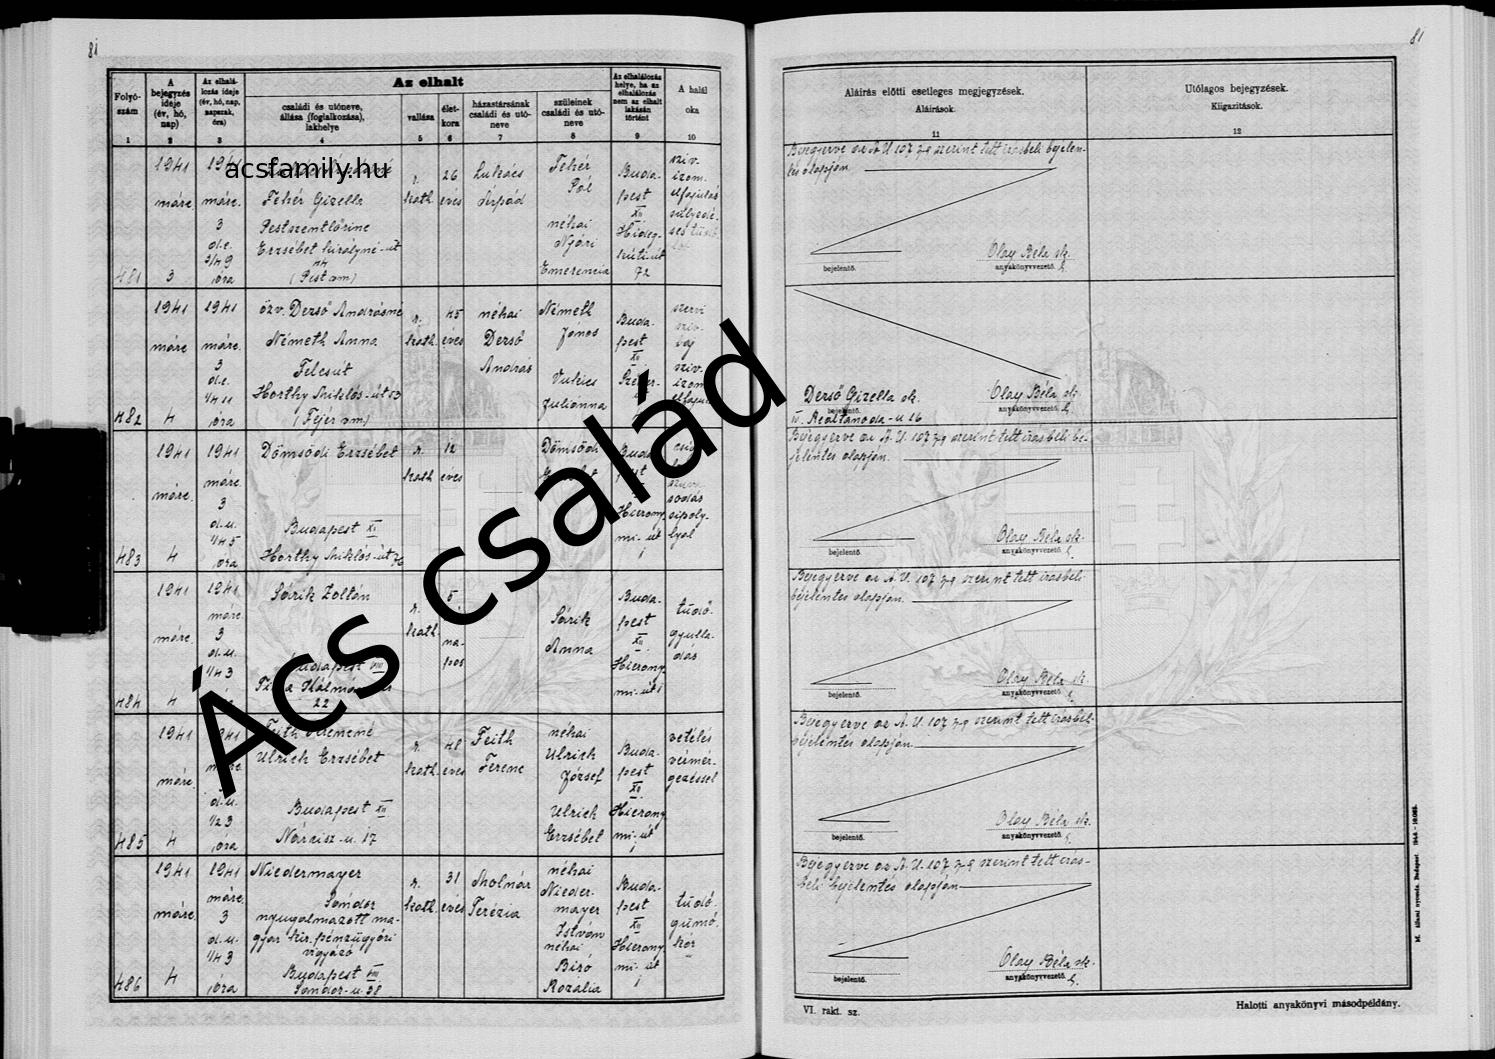 81
81
Az elhalt
Folyó-
szám
A
bejegyzés
ideje
(év, hó,
nap)
Az elhalá-
lozás ideje
(év, hó, nap,
napszak,
óra)
családi és utóneve,
állása (foglalkozása),
lakhelye
vallása
élet-
kora
házastársának
családi és utó-
neve
szüleinek
családi és utó-
neve
Az elhalálozás
helye, ha az
elhalálozás
nem az elhalt
lakásán
történt
A halál
oka
1 2 3 4 5 6 7 8 9 10
Aláírás előtti esetleges megjegyzések.
Aláírások.
11
Utólagos bejegyzések.
Kiigazítások.
12
acsfamily.hu
Ács család
481
1941
márc.
3
1941
márc.
3
d.e.
3/4 9
óra
Fehér Gizella
Pestszentlőrinc
Erzsébet királyné-út
44
(Pest vm)
r.
kath.
26
éves
Lukács
Árpád
Fehér
Pál
néhai
Nyári
Emerencia
Buda-
pest
XII
Hideg-
kúti út
72
szív-
izom-
elfajulás
Bejegyezve az A.U. 107 §-a szerint tett írásbeli bejelen-
tés alapján.
bejelentő.
Olay Béla sk.
anyakönyvvezető h.
482
1941
márc
4
1941
márc.
3
d.e.
1/4 11
óra
özv. Dersó Andrásné
Németh Anna
Felcsút
Horthy Miklós-út 53
(Fejér vm)
r.
kath.
45
éves
néhai
Dersó
András
Németh
János
Vukics
Julianna
Buda-
pest
XII
szervi
szív-
baj
szív-
izom
Dersó Gizella sk.
bejelentő.
IV. Reáltanoda-u 16
Olay Béla sk.
anyakönyvvezető h.
483
1941
márc.
4
1941
márc.
3
d.u.
1/4 5
óra
Dömsödi Erzsébet
Budapest XI
Horthy Miklós-út 76
r.
kath.
12
éves
Dömsödi
Hierony-
mi-út
1
sodás
sipoly-
lyal
Bejegyezve az A.U. 107 §-a szerint tett írásbeli be-
jelentés alapján.
bejelentő.
Olay Béla sk.
anyakönyvvezető h.
484
1941
márc.
4
1941
márc.
3
d.u.
1/4 3
Sárik Zoltán
Budapest VIII
22
r.
kath.
5
na-
pos
Sárik
Anna
Buda-
pest
XII.
Hierony-
mi-út 1
tüdő-
gyulla-
dás
Bejegyezve az A.U. 107 §-a szerint tett írásbeli
bejelentés alapján.
bejelentő.
Olay Béla sk.
anyakönyvvezető h.
485
1941
márc.
4
1941
márc.
d.u.
1/2 3
óra
Feith Ferencné
Ulrich Erzsébet
Budapest XII
Nárcisz-u. 17
r.
kath.
48
éves
Feith
Ferenc
néhai
Ulrich
József
Ulrich
Erzsébet
Buda-
pest
XII.
Hierony-
mi-út
1
vetélés
vérmér-
gezéssel
Bejegyezve az A.U. 107 §-a szerint tett írásbeli
bejelentés alapján.
bejelentő.
Olay Béla sk.
anyakönyvvezető h.
486
1941
márc.
4
1941
márc.
3
d.u.
1/4 3
óra
Niedermayer
Sándor
nyugalmazott ma-
gyar kir. pénzügyőri
vigyázó
Budapest VIII
Sándor-u. 38
r.
kath.
31
éves
Molnár
Terézia
néhai
Nieder-
mayer
István
néhai
Biró
Rozália
Buda-
pest
XII
Hierony-
mi-út
1
tüdő-
gümő-
kór
Bejegyezve az A.U. 107 §-a szerint tett írás-
beli bejelentés alapján
bejelentő.
Olay Béla sk.
anyakönyvvezető h.
VI. rakt. sz.
Halotti anyakönyvi másodpéldány.